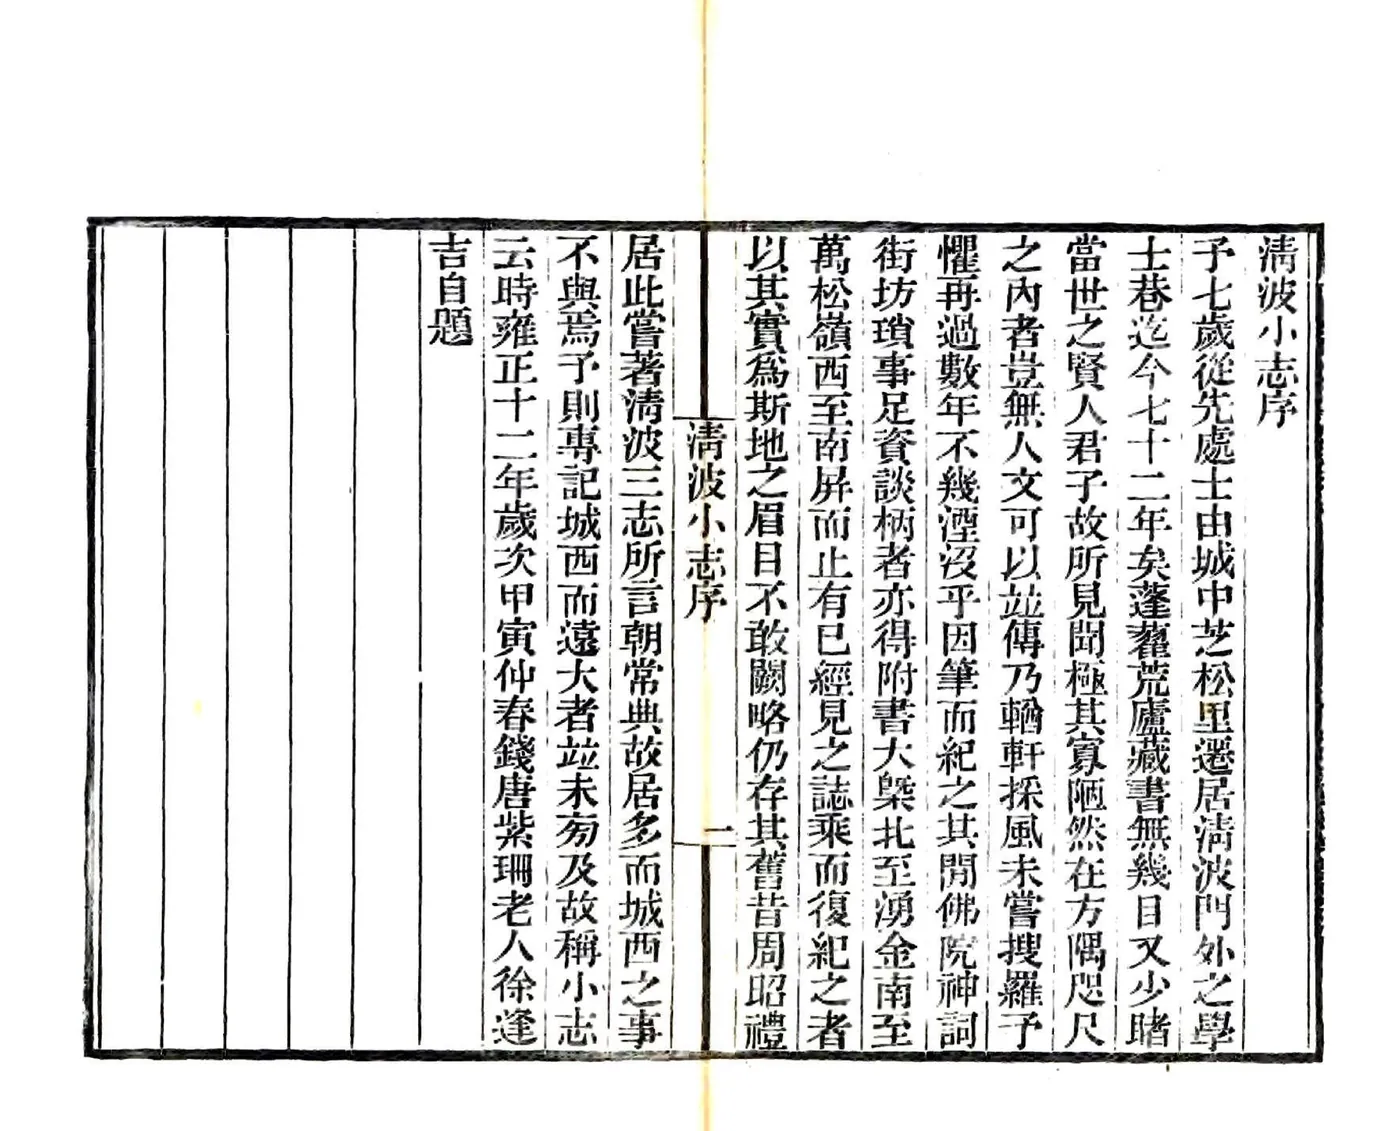 清波小志序
予七歲從先處士由城中芝松里遷居清波門外之學
士巷迄今七十二年矣蓬藋荒廬藏書無幾目又少睹
當世之賢人君子故所見聞極其寡陋然在方隅咫尺
之內者豈無人文可以竝傳乃輶軒採風未嘗搜羅予
懼再過數年不幾湮沒乎因筆而紀之其閒佛院神祠
街坊瑣事足資談柄者亦得附書大槩北至湧金南至
萬松嶺西至南屏而止有已經見之誌乘而復紀之者
以其實爲斯地之眉目不敢闕略仍存其舊昔周昭禮
清波小志序
一
居此嘗著清波三志所言朝常典故居多而城西之事
不與焉予則專記城西而遠大者竝未旁及故稱小志
云時雍正十二年歲次甲寅仲春錢唐紫珊老人徐逢
吉自題